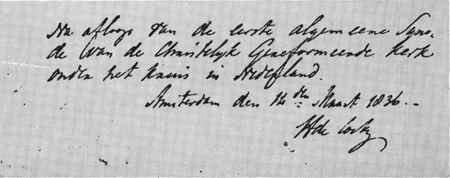 Na afloop van de eerste algemeene Syno-
de van de Christelijk Gereformeerde Kerk
onder het Kruis in Nederland.
Amsterdam den 14den Maart 1836.-
H de Cock